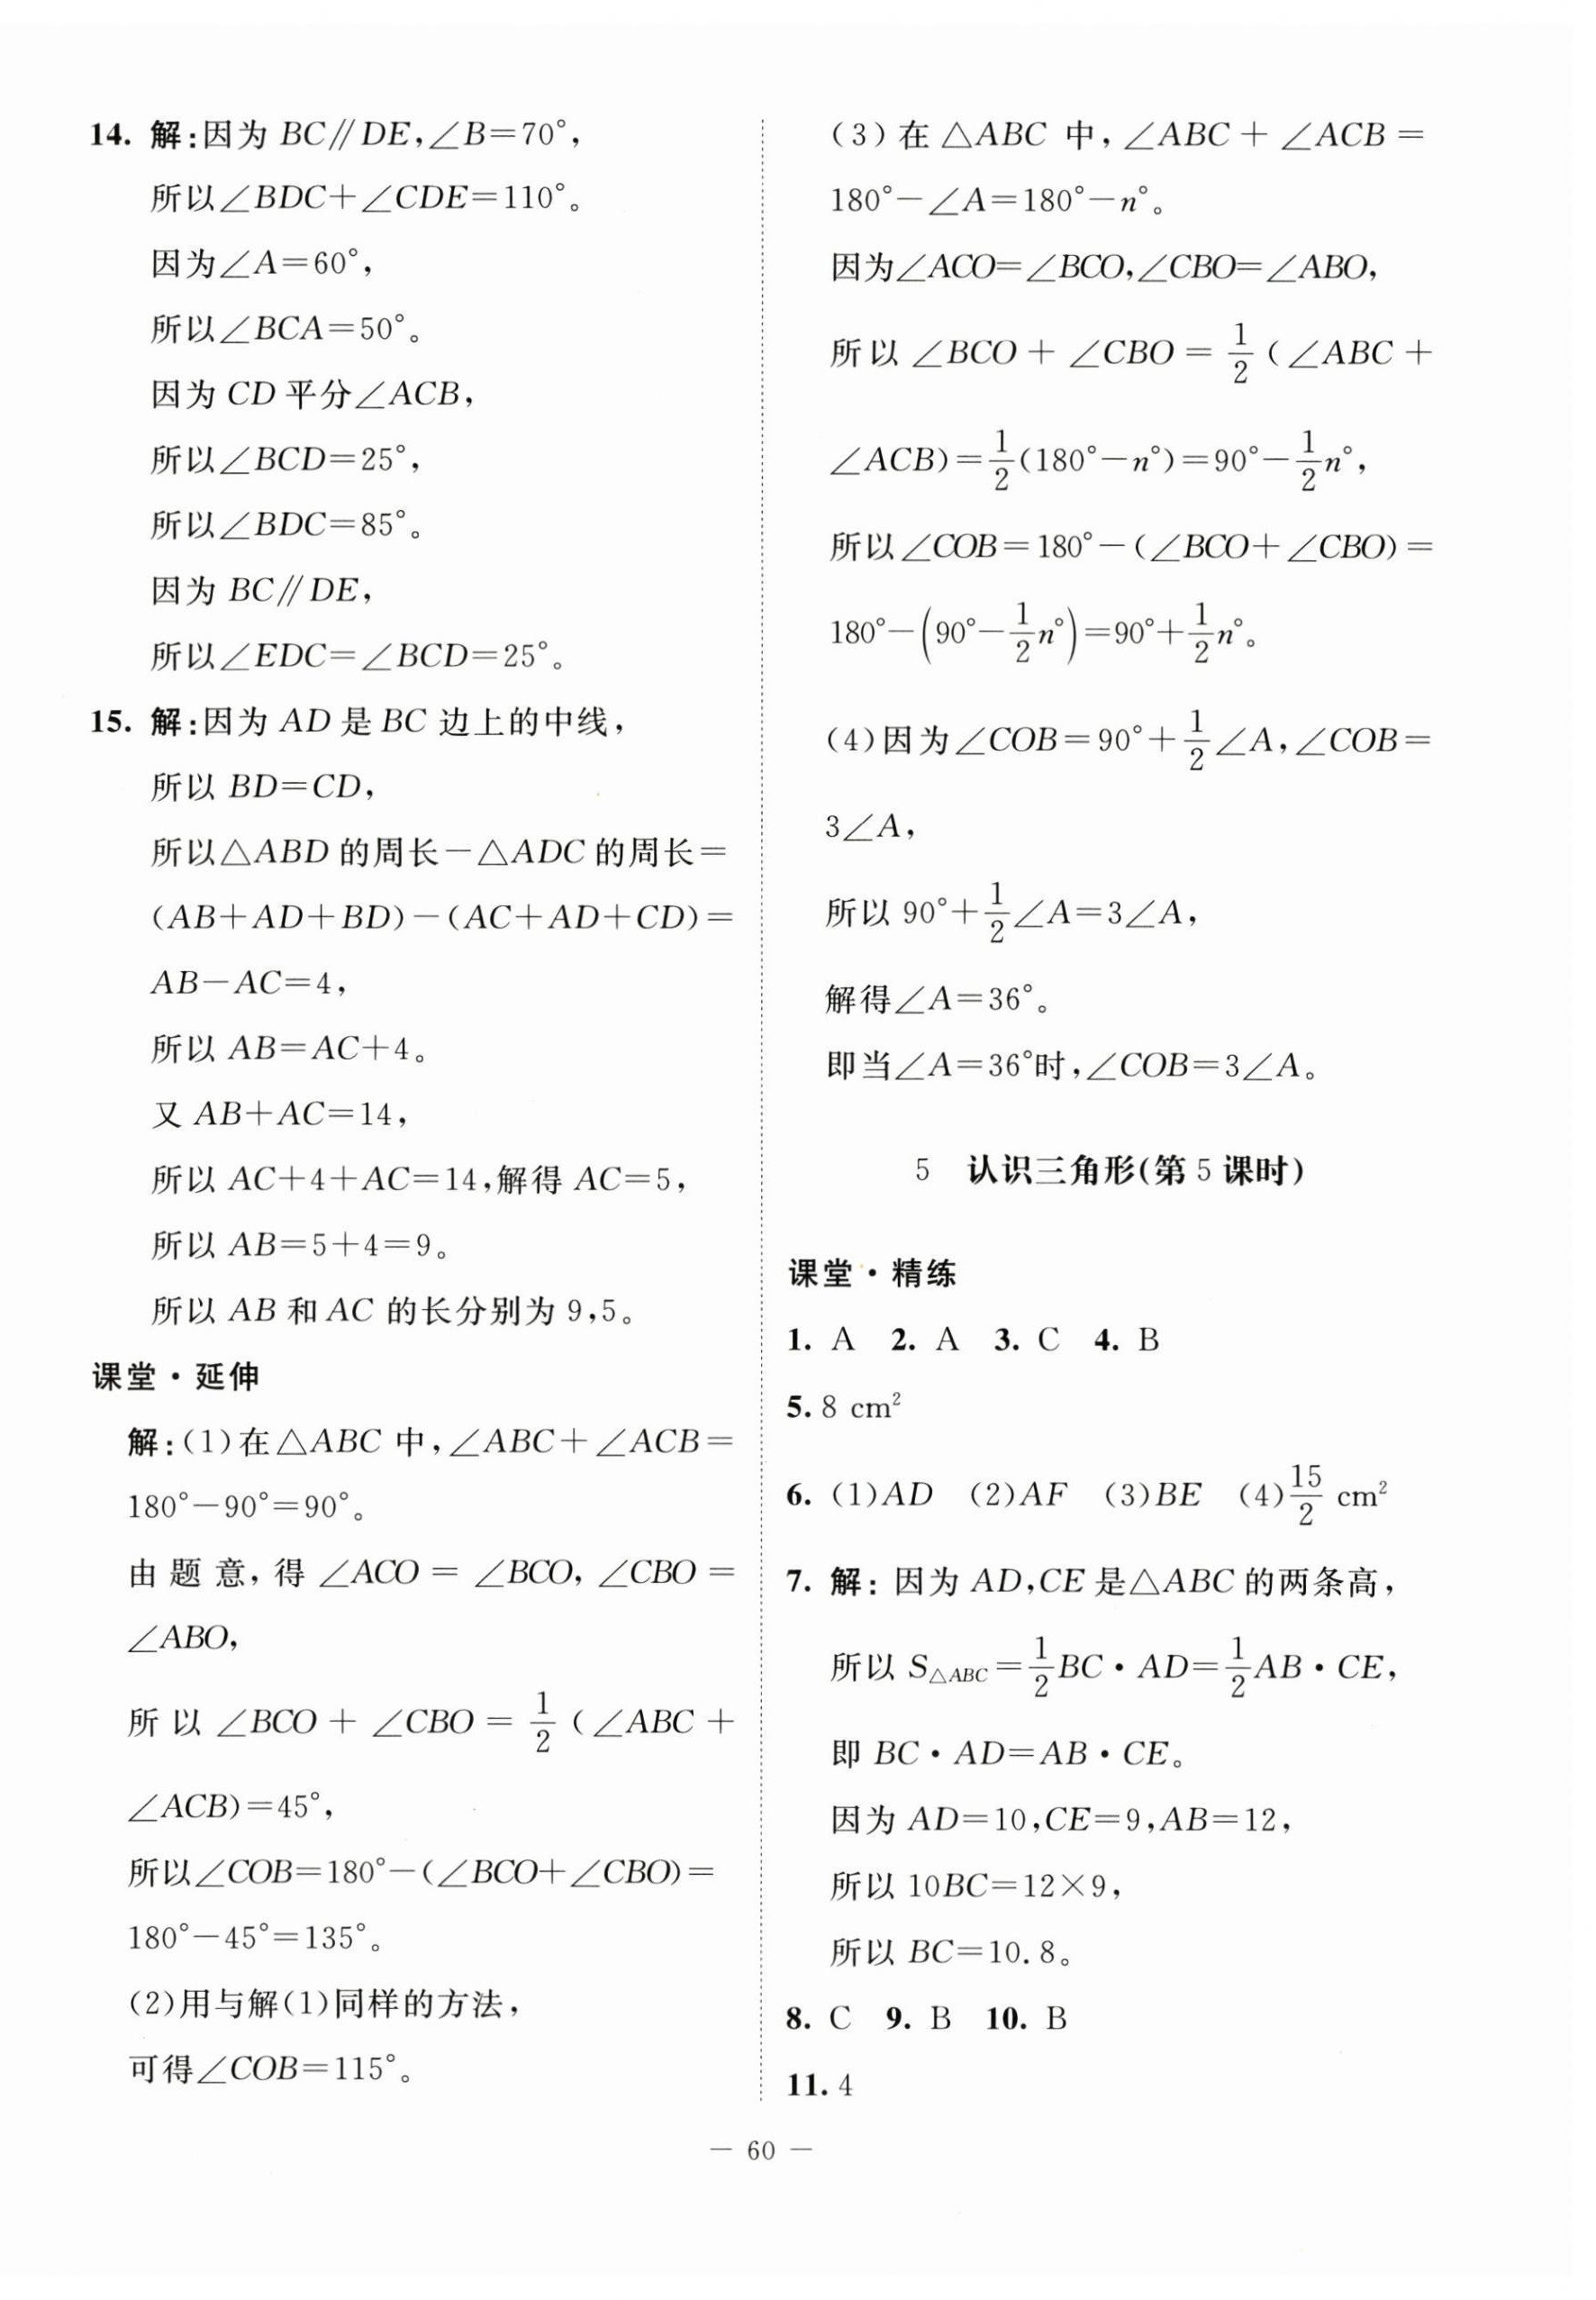 14. 解:因为 BC∥DE,∠B=70°,
所以∠BDC+∠CDE=110°。
因为∠A=60°,
所以∠BCA=50°。
因为 CD 平分∠ACB,
所以∠BCD=25°,
所以∠BDC=85°。
因为 BC∥DE,
所以∠EDC=∠BCD=25°。
15. 解:因为 AD 是 BC 边上的中线,
所以 BD=CD,
所以△ABD 的周长-△ADC 的周长=
(AB+AD+BD)-(AC+AD+CD)=
AB-AC=4,
所以 AB=AC+4。
又 AB+AC=14,
所以 AC+4+AC=14,解得 AC=5,
所以 AB=5+4=9。
所以 AB 和 AC 的长分别为 9,5。
课堂·延伸
解:(1)在△ABC 中,∠ABC+∠ACB=
180°-90°=90°。
由题意,得∠ACO=∠BCO,∠CBO=
∠ABO,
所以∠BCO+∠CBO=1/2(∠ABC+
∠ACB)=45°,
所以∠COB=180°-(∠BCO+∠CBO)=
180°-45°=135°。
(2)用与解(1)同样的方法,
可得∠COB=115°。
(3)在△ABC 中,∠ABC+∠ACB=
180°-∠A=180°-n°。
因为∠ACO=∠BCO,∠CBO=∠ABO,
所以∠BCO+∠CBO=1/2(∠ABC+
∠ACB)=1/2(180°-n°)=90°-1/2n°,
所以∠COB=180°-(∠BCO+∠CBO)=
180°-(90°-1/2n°)=90°+1/2n°。
(4)因为∠COB=90°+1/2∠A,∠COB=
3∠A,
所以 90°+1/2∠A=3∠A,
解得∠A=36°。
即当∠A=36°时,∠COB=3∠A。
5 认识三角形(第 5 课时)
课堂·精练
1. A 2. A 3. C 4. B
5. 8 cm²
6. (1)AD (2)AF (3)BE (4)15/2 cm²
7. 解:因为 AD,CE 是△ABC 的两条高,
所以 S△ABC=1/2BC·AD=1/2AB·CE,
即 BC·AD=AB·CE。
因为 AD=10,CE=9,AB=12,
所以 10BC=12×9,
所以 BC=10.8。
8. C 9. B 10. B
11. 4
— 60 —